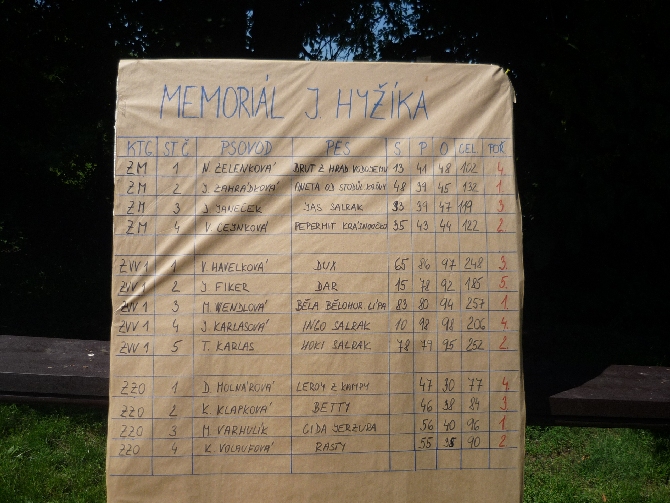 MEMORIÁL J. HYŽÍKA
KTG ST.Č PSOVOD PES S P O CEL POŘ
ZM 1 N. ZELENKOVÁ BRUT Z HRAD VODOJEMU 13 41 48 102 4.
ZM 2 J. ZAHRÁDKOVÁ ANETA OD STODŮL 48 39 45 132 1.
ZM 3 J. JANEČEK JAS SALRAK 33 39 47 119 3
ZM 4 V. CEJNKOVÁ PEPERMIT KRASNOOČKO 35 43 44 122 2.
ZVV 1 1 V. HAVELKOVÁ DUX 65 86 97 248 3.
ZVV 1 2 J. FIKER DAR 15 78 92 185 5.
ZVV 1 3 M. WENDLOVÁ BĚLA BĚLOHOR. LÍPA 83 80 94 257 1.
ZVV 1 4 J. KARLASOVÁ INGO SALRAK 10 98 98 206 4.
ZVV 1 5 T. KARLAS HOKI SALRAK 78 79 95 252 2.
ZZO 1 D. MOLNÁROVÁ LEROY Z KAMPY 47 30 77 4.
ZZO 2 K. KLAPKOVÁ BETTY 46 38 84 3.
ZZO 3 M. VARHULÍK CIDA JERZURA 56 40 96 1.
ZZO 4 K. RASTY 55 35 90 2